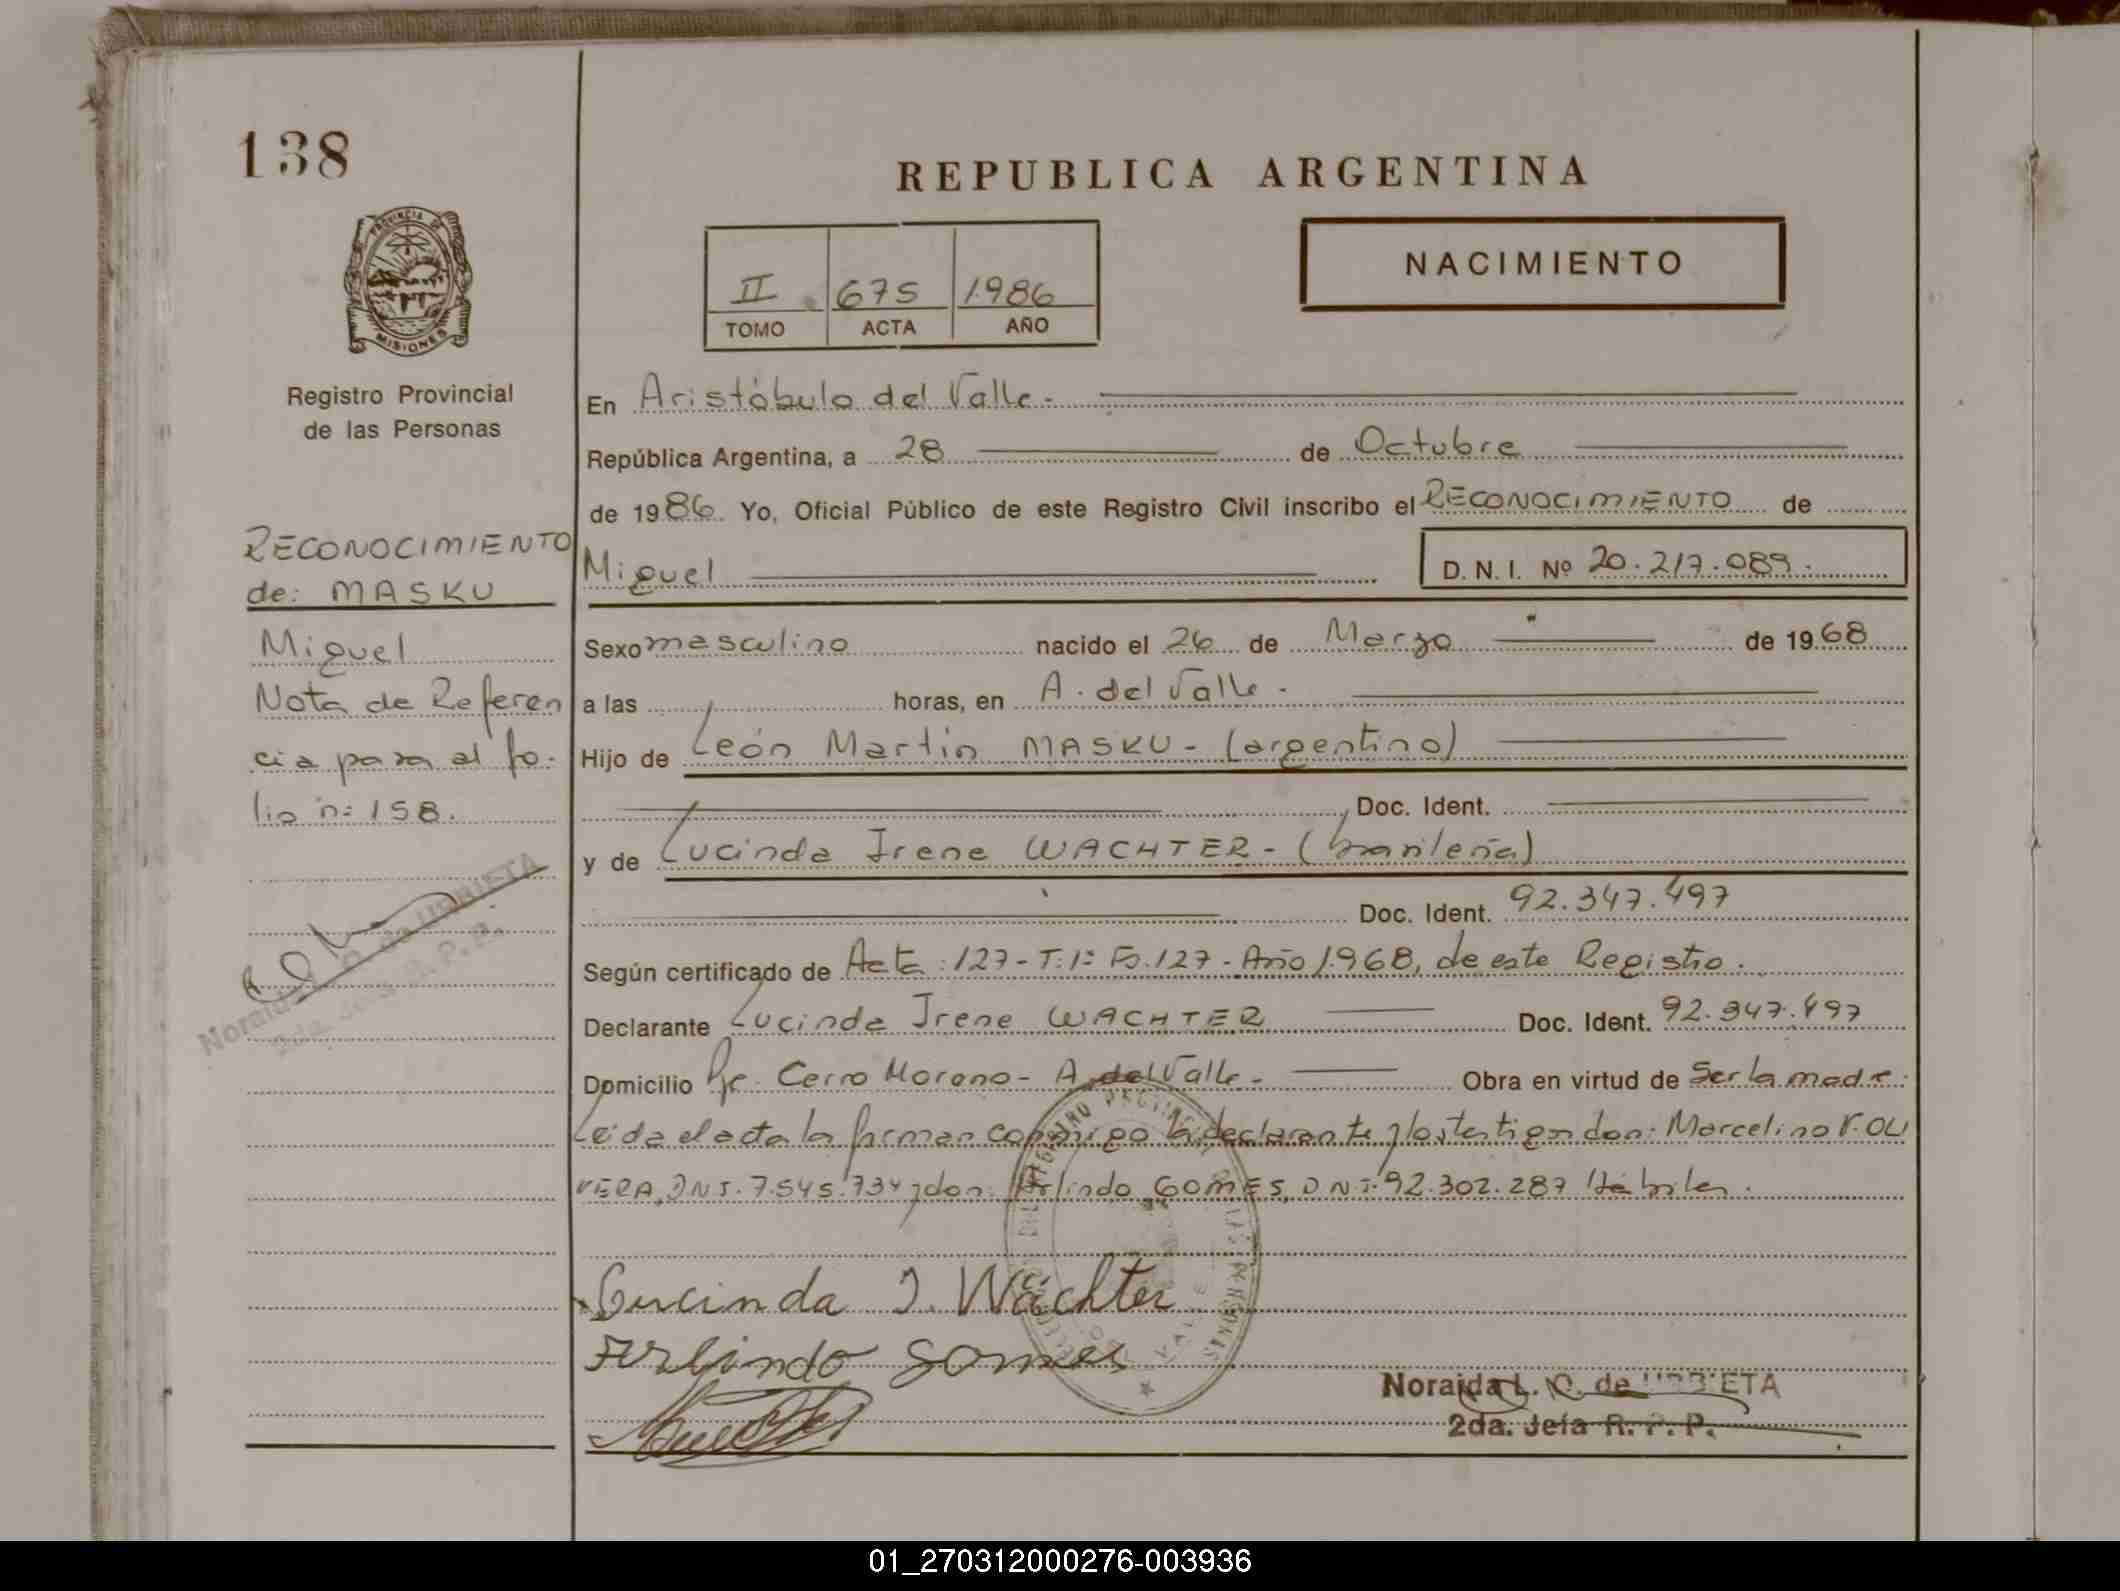 138
PROVINCIA DE
MISIONES
Registro Provincial
de las Personas
RECONOCIMIENTO
de: MASKU
Miguel
Nota de Referen
cia para al fo-
lio n: 158.
Noraida L. de URBIETA
2da. Jefa R. P. P.
REPUBLICA ARGENTINA
NACIMIENTO
II 675 1986
TOMO ACTA AÑO
En Aristóbulo del Valle.-
República Argentina, a 28 de Octubre
de 1986. Yo, Oficial Público de este Registro Civil inscribo el RECONOCIMIENTO de
Miguel D. N. I. Nº 20.217.089.
Sexo masculino nacido el 26 de Marzo de 1968
a las horas, en A. del Valle.-
Hijo de León Martín MASKU - (argentino)
Doc. Ident.
y de Lucinda Irene WACHTER - (brasileña)
Doc. Ident. 92.347.497
Según certificado de Acta: 127 - T: 1º Fo. 127 - Año 1.968, de este Registro.
Declarante Lucinda Irene WACHTER Doc. Ident. 92.347.497
Domicilio Pje. Cerro Moreno - A. del Valle - Obra en virtud de Ser la madre.
Leída el acta la firman conmigo la declarante y los testigos don: Marcelino V. OLI
VERA, DNI. 7.545.734 y don: Arlindo GOMES, DNI. 92.302.287 Hábiles.
Lucinda I. Wächter
Arlindo Gomes
Noraida L. de URBIETA
2da. Jefa R. P. P.
01_270312000276-003936